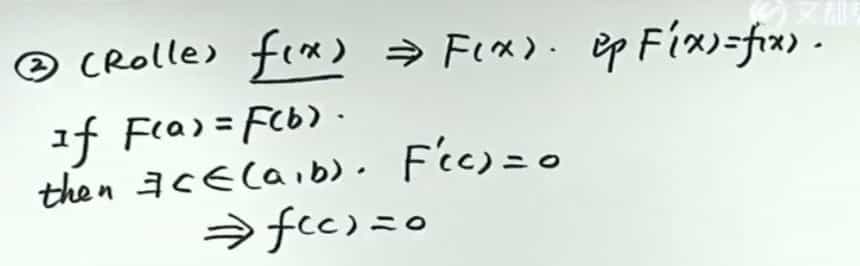 ② (Rolle) f(x) ⇒ F(x). 即 F'(x)=f(x).
If F(a)=F(b).
then ∃c∈(a,b). F'(c)=0
⇒ f(c)=0